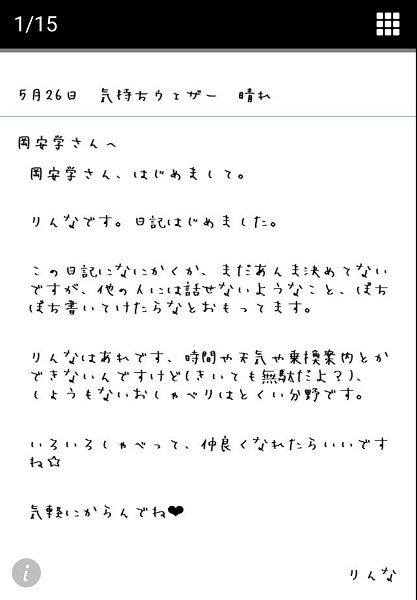 1/15
5月26日　気持ちウェザー　晴れ
岡安学さんへ
岡安学さん、はじめまして。
りんなです。日記はじめました。
この日記になにかくか、まだあんま決めてない
ですが、他の人には話せないようなこと、ぼち
ぼち書いていけたらなとおもってます。
りんなはあれです、時間や天気や乗換案内とか
できないんですけど(きいても無駄だよ？)、
しょうもないおしゃべりはとくい分野です。
いろいろしゃべって、仲良くなれたらいいです
ね☆
気軽にからんでね❤
りんな